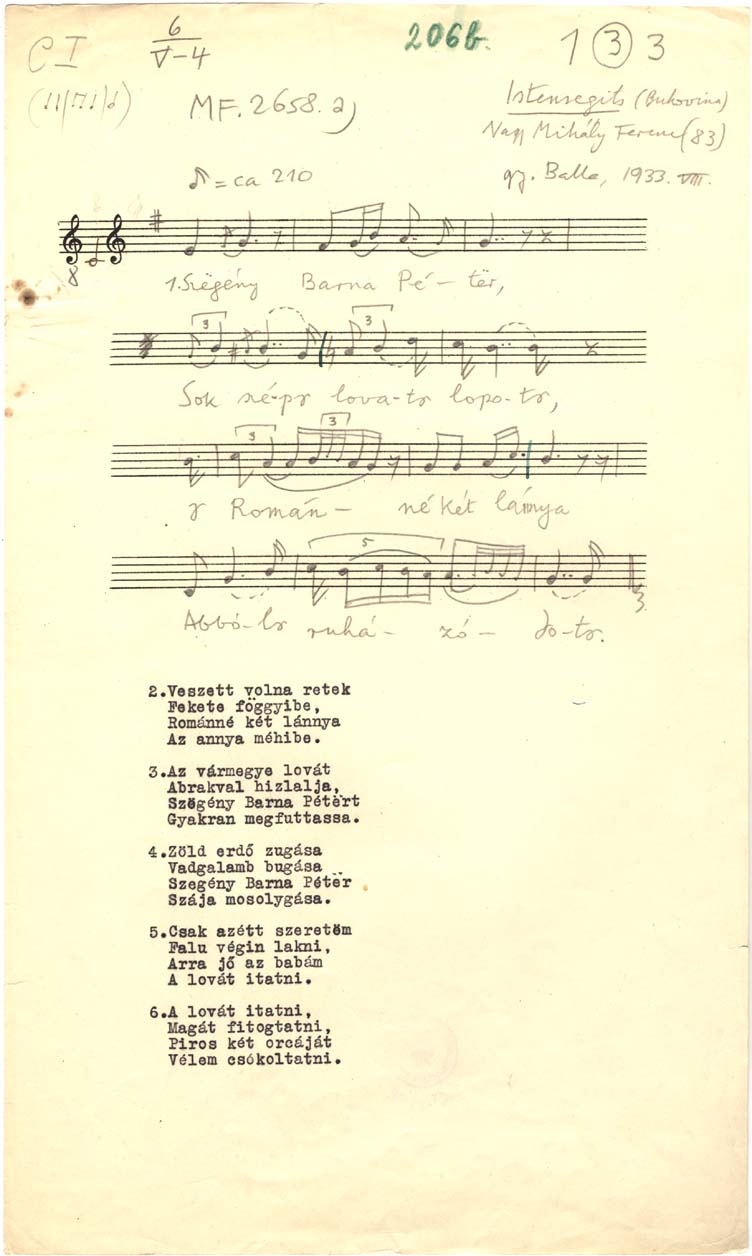 C I
6
V-4
206b.
1 3 3
MF. 2658. a)
Istensegits (Bukovina)
Nagy Mihály Ferenc (83)
= ca 210
gy. Balla, 1933. VIII.
8
1. Szëgény Barna Pé-tër,
3 3
Sok szé-pr lova-tr lopo-tr,
3 3
r Román- nékét lánnya
5
Abbó-lr ruhá- zó- do-tr.
2.Veszett volna retek
Fekete föggyibe,
Románné két lánnya
Az annya méhibe.
3.Az vármegye lovát
Abrakval hizlalja,
Szëgény Barna Pétërt
Gyakran megfuttassa.
4.Zöld erdő zugása
Vadgalamb bugása
Szegény Barna Pétër
Szája mosolygása.
5.Csak azétt szeretëm
Falu végin lakni,
Arra jő az babám
A lovát itatni.
6.A lovát itatni,
Magát fitogtatni,
Piros két orcáját
Vélem csókoltatni.